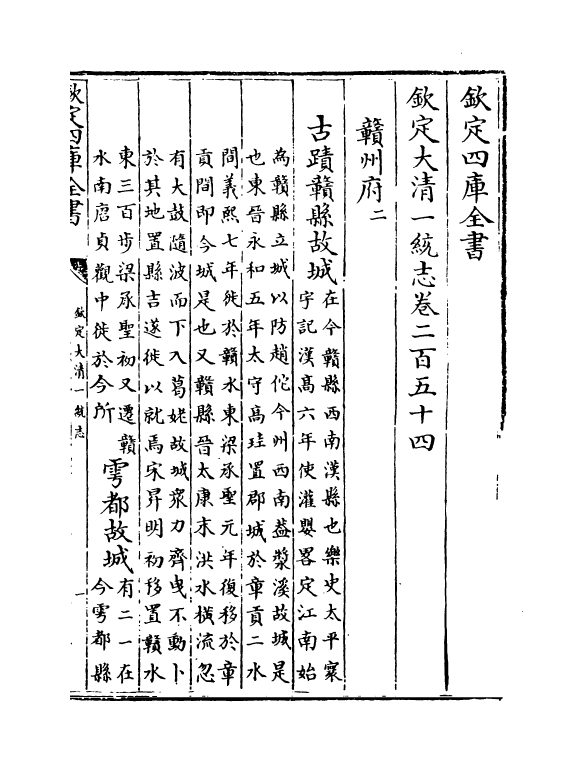 欽定四庫全書
欽定大清一統志卷二百五十四
贛州府二
古蹟贛縣故城在今贛縣西南漢縣也樂史太平寰
宇記漢髙六年使灌嬰畧定江南始
為贛縣立城以防趙佗今州西南益漿溪故城是
也東晉永和五年太守髙珪置郡城於章貢二水
間義熙七年徙於贛水東梁承聖元年復移於章
貢間即今城是也又贛縣晉太康末洪水橫流忽
有大鼓隨波而下入葛姥故城衆力齊曳不動卜
於其地置縣吉遂徙以就焉宋昇明初移置贛水
東三百步梁承聖初又遷贛
水南唐貞觀中徙於今所
雩都故城有二一在
今雩都縣
欽定四庫全書
欽定大清一統志
一